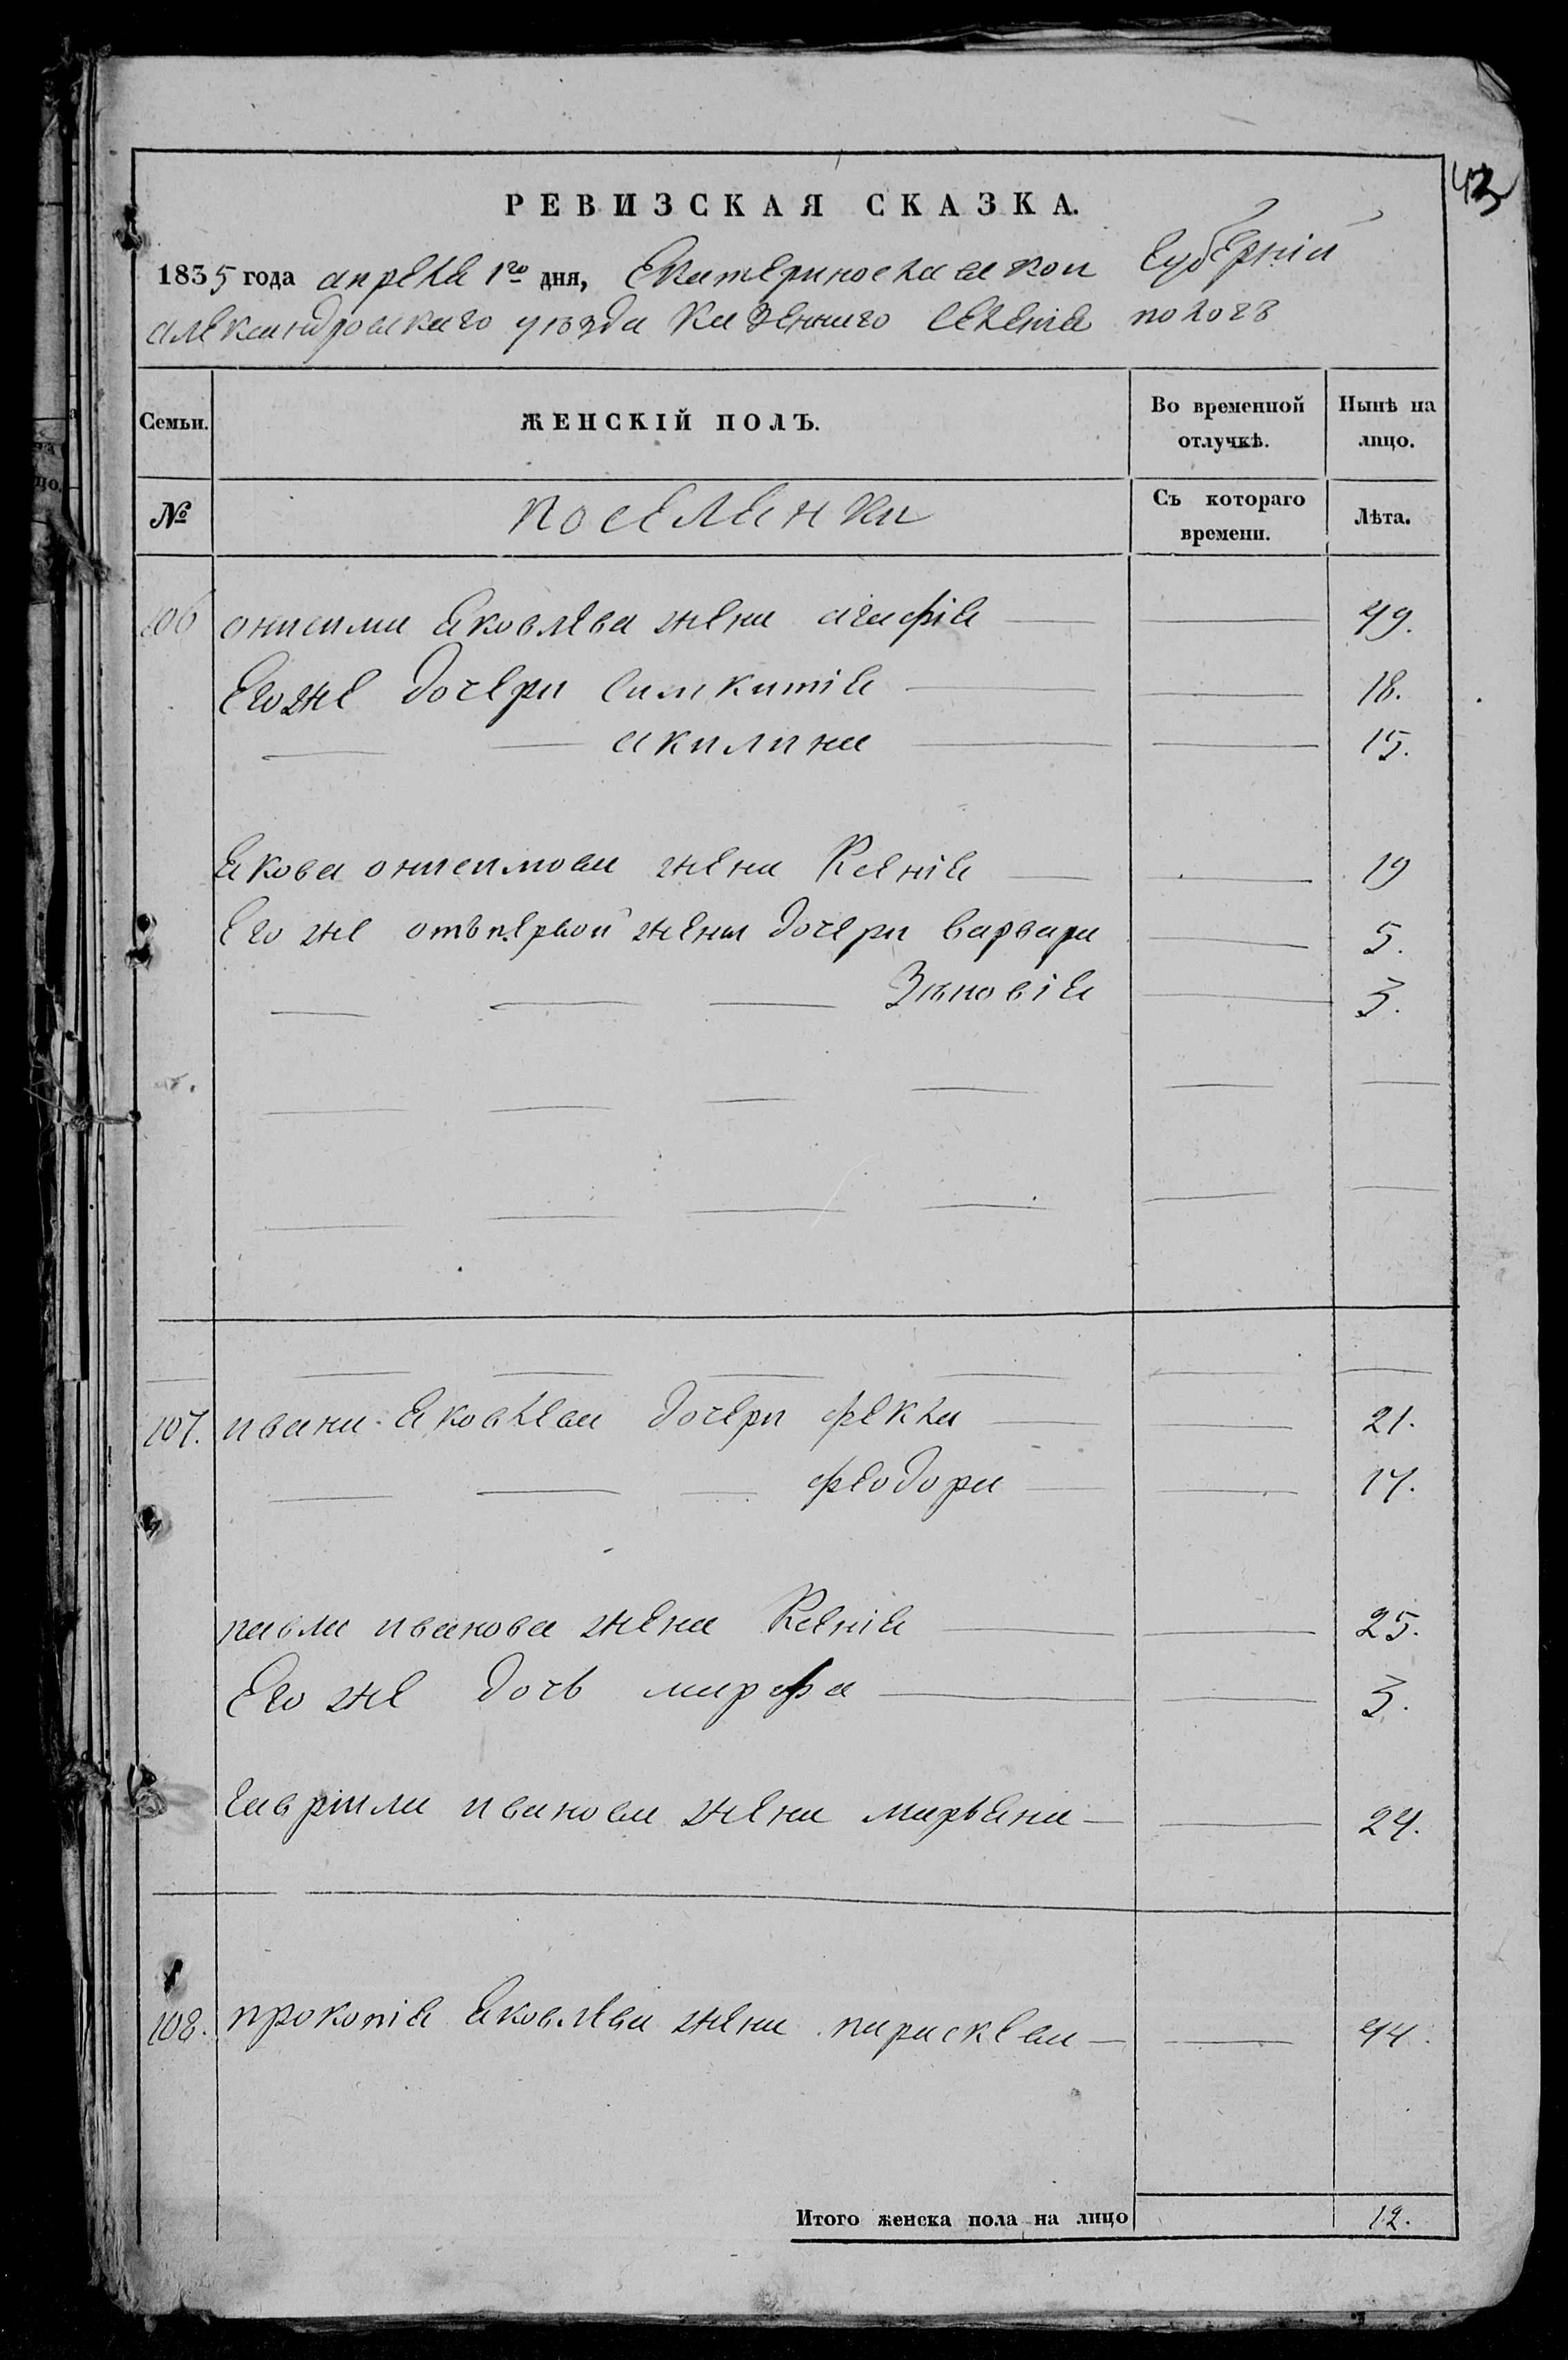 43
РЕВИЗСКАЯ СКАЗКА.
1835 года апреля 1го дня, Екатеринославской губернии
александровскаго уезда казеннаго селения пологъ
Семьи.
ЖЕНСКІЙ ПОЛЪ.
Во временной отлучкѣ.
Нынѣ на лицо.
№
поселянки
Съ котораго времени.
Лѣта.
106 онисима Яковлева жена агафія 49.
Его же дочери синклитія 18.
акилина 15.
Якова онисимова жена Ксенія 19
Его же отъ первой жены дочери варвара 5.
Зѣновія 3.
107. ивана Яковлева дочери фекла 21.
феодора 17.
павла иванова жена Ксенія 25.
Его же дочь марфа 3.
гавріила иванова жена марьяна 24.
108. прокопія Яковлева жена параскева 44.
Итого женска пола на лицо 12.